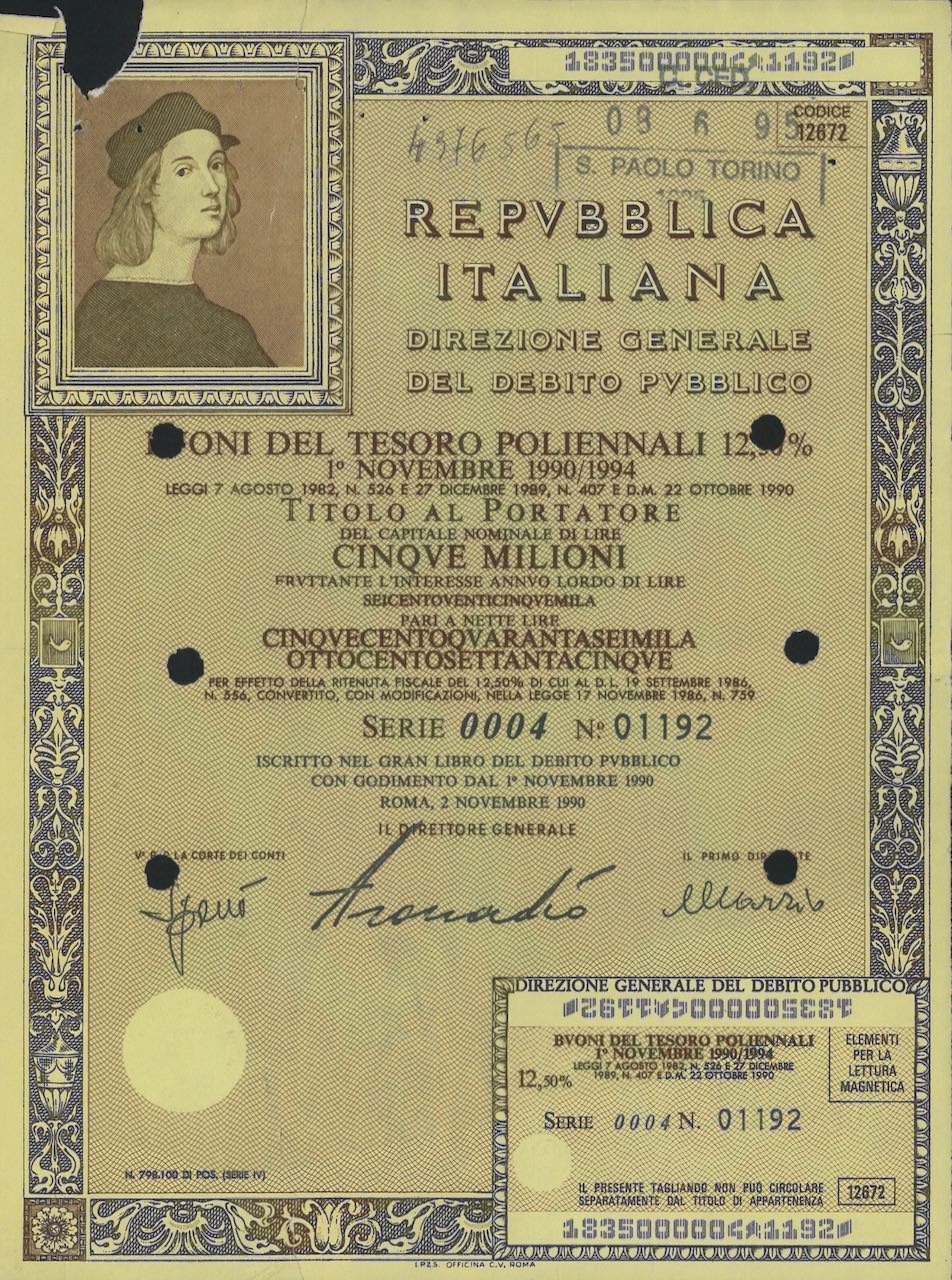 C. CED.
03 6 95
S. PAOLO TORINO
CODICE
12672
REPVBBLICA
ITALIANA
DIREZIONE GENERALE
DEL DEBITO PVBBLICO
BVONI DEL TESORO POLIENNALI 12,50%
1º NOVEMBRE 1990/1994
LEGGI 7 AGOSTO 1982, N. 526 E 27 DICEMBRE 1989, N. 407 E D.M. 22 OTTOBRE 1990
TITOLO AL PORTATORE
DEL CAPITALE NOMINALE DI LIRE
CINQVE MILIONI
FRVTTANTE L'INTERESSE ANNVO LORDO DI LIRE
SEICENTOVENTICINQVEMILA
PARI A NETTE LIRE
CINQVECENTOQVARANTASEIMILA
OTTOCENTOSETTANTACINQVE
PER EFFETTO DELLA RITENUTA FISCALE DEL 12,50% DI CUI AL D.L. 19 SETTEMBRE 1986,
N. 556, CONVERTITO, CON MODIFICAZIONI, NELLA LEGGE 17 NOVEMBRE 1986, N. 759
SERIE 0004 Nº 01192
ISCRITTO NEL GRAN LIBRO DEL DEBITO PVBBLICO
CON GODIMENTO DAL 1º NOVEMBRE 1990
ROMA, 2 NOVEMBRE 1990
IL DIRETTORE GENERALE
Vº P. LA CORTE DEI CONTI
IL PRIMO DIRIGENTE
DIREZIONE GENERALE DEL DEBITO PUBBLICO
BVONI DEL TESORO POLIENNALI
1º NOVEMBRE 1990/1994
LEGGI 7 AGOSTO 1982, N. 526 E 27 DICEMBRE
1989, N. 407 E D.M. 22 OTTOBRE 1990
12,50%
ELEMENTI
PER LA
LETTURA
MAGNETICA
SERIE 0004 N. 01192
IL PRESENTE TAGLIANDO NON PUÒ CIRCOLARE
SEPARATAMENTE DAL TITOLO DI APPARTENENZA
12672
N. 798.100 DI POS. (SERIE IV)
I.P.Z.S. OFFICINA C.V. ROMA